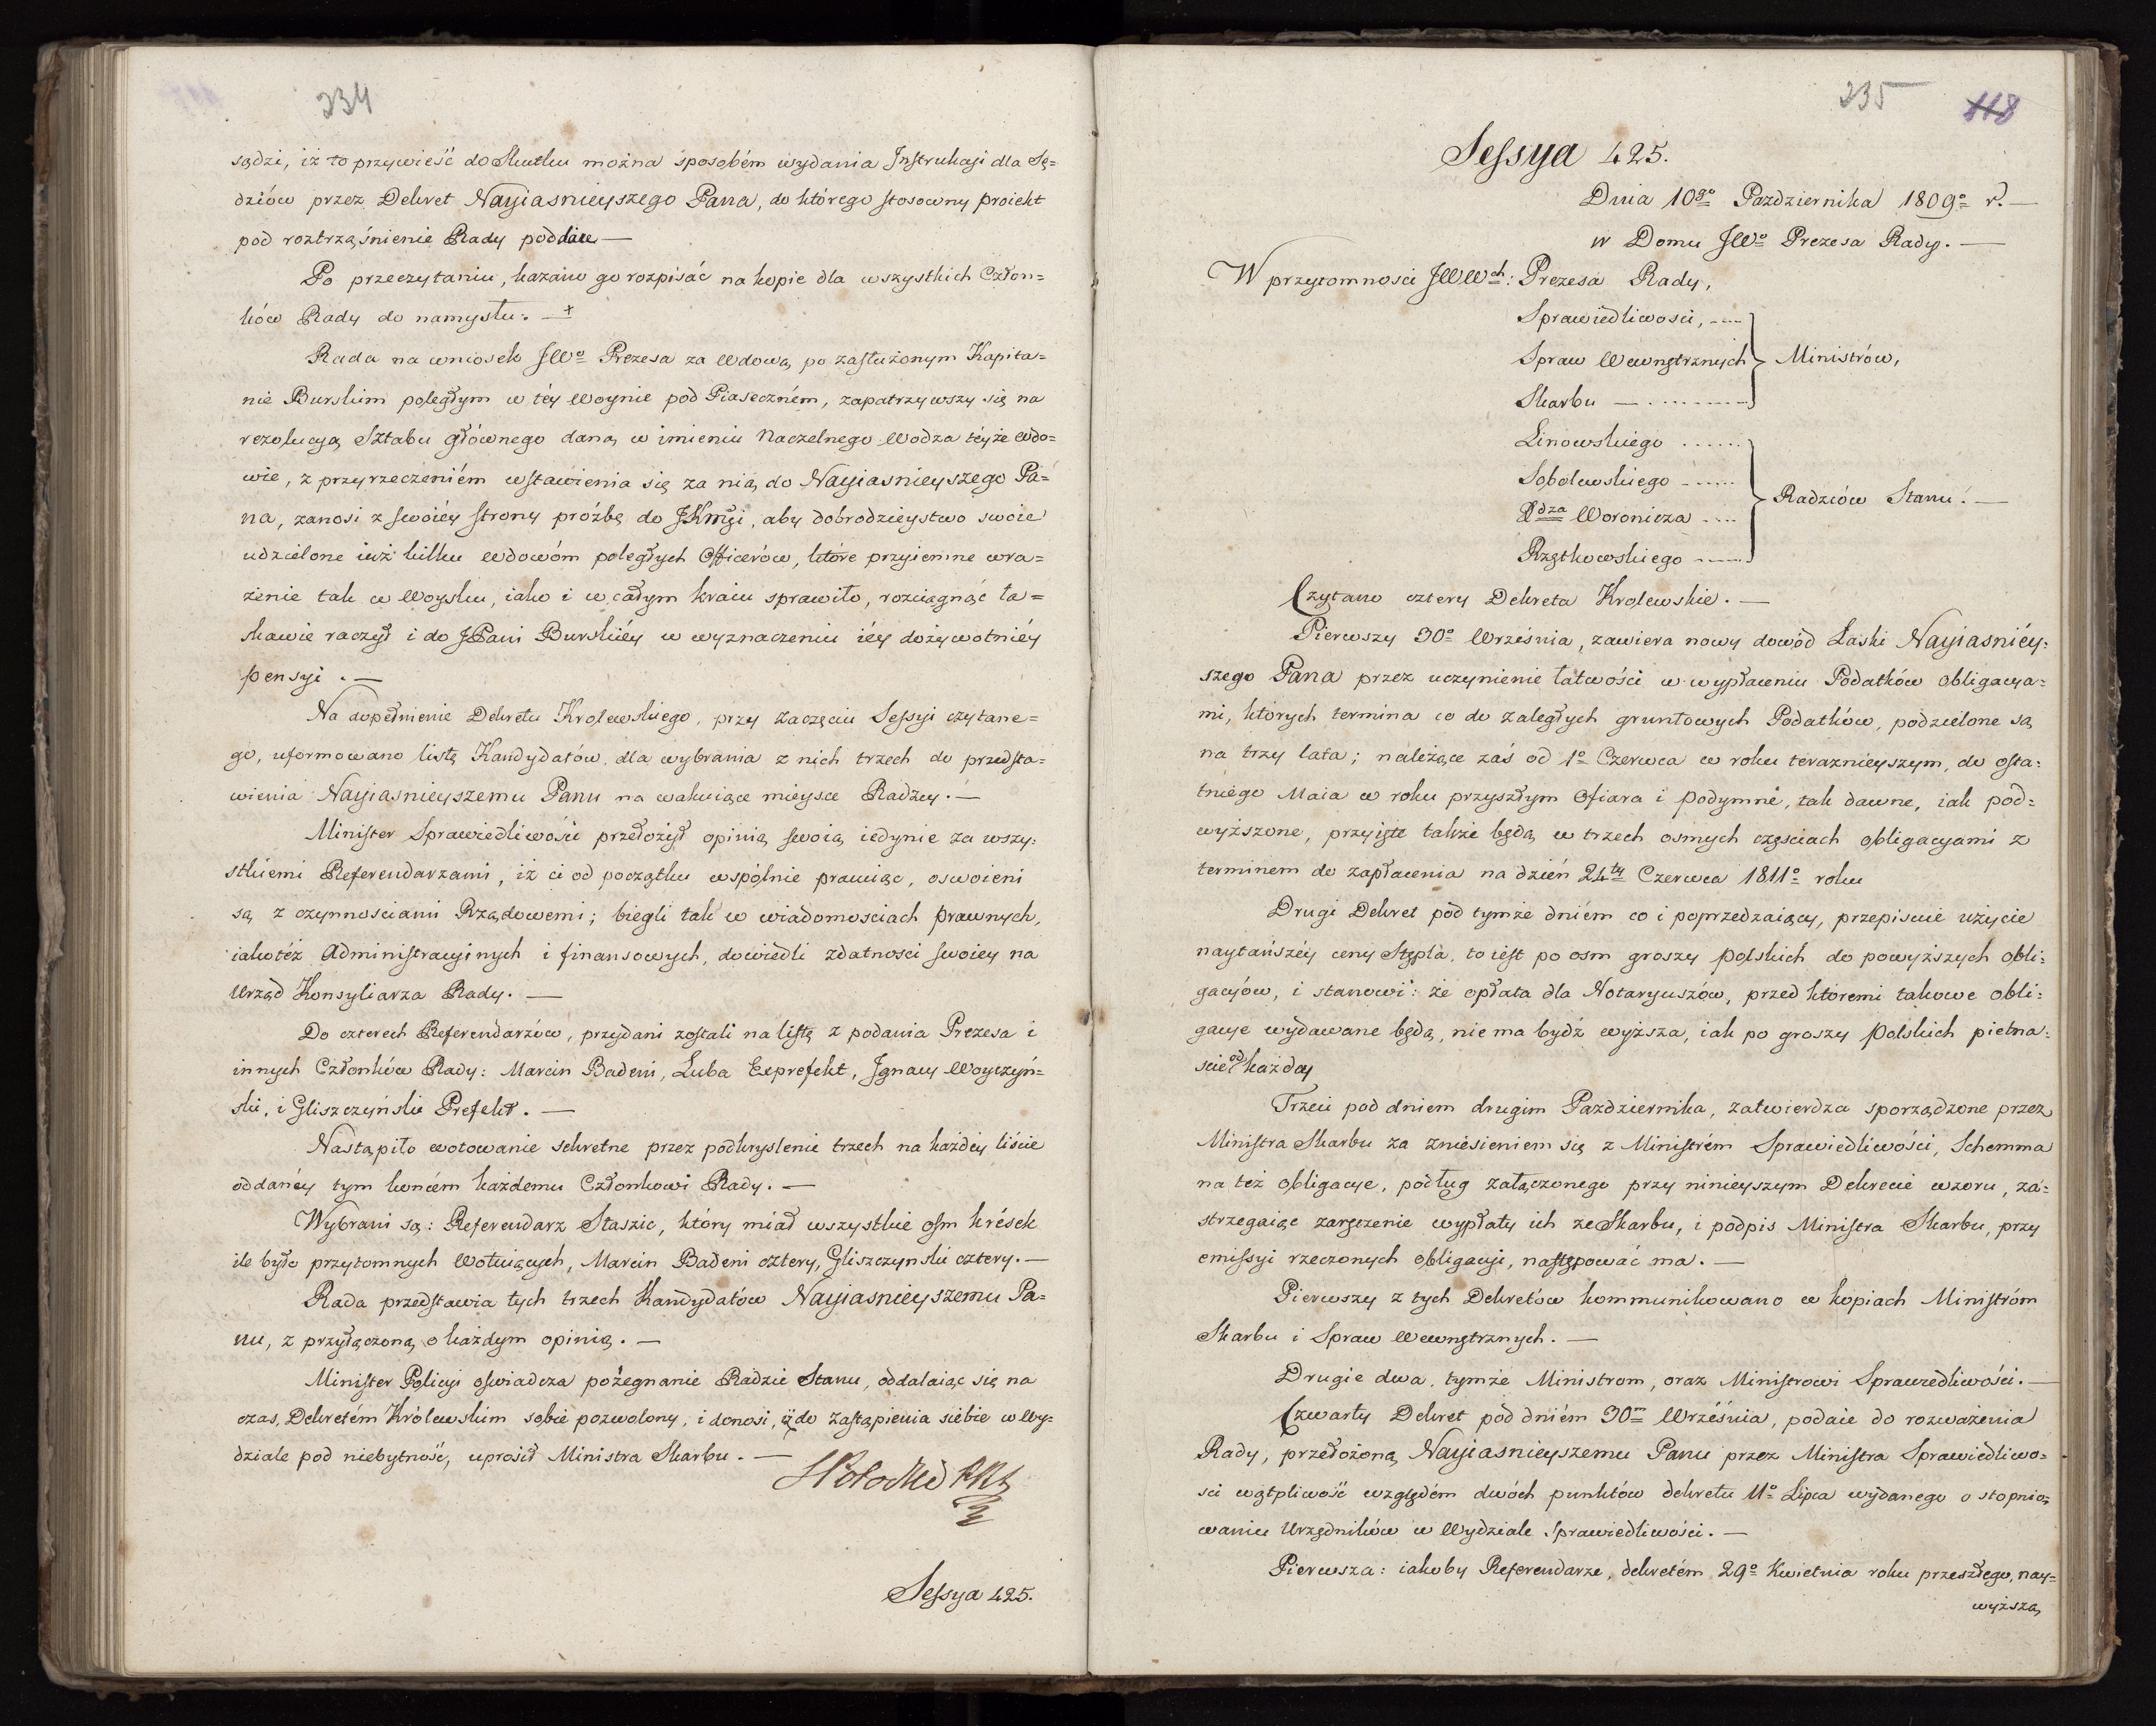 234
sądzi, iż to przywieść do Skutku można sposobém wydania Instrukcji dla Sę=
dziów przez Dekret Nayiasnieyszego Pana, do którego stosowny proiekt
pod roztrząśnienie Rady poddaie —
Po przeczytaniu, kazano go rozpisać na kopie dla wszystkich Człon=
ków Rady do namysłu. — +
Rada na wniosek JWo Prezesa za Wdową po zasłużonym Kapita=
nie Burskim poległym w téy Woynie pod Piaseczném, zapatrzywszy się na
rezolucyą Sztabu głównego daną w imieniu Naczelnego Wodza téyże Wdo=
wie, z przyrzeczeniém wstawienia się za nią do Nayiasnieyszego Pa=
na, zanosi z swoiéy strony próźbę do JKmći, aby dobrodzieystwo swoie
udzielone iuż kilku Wdowóm poległych Officerów, które przyiemne wra=
żenie tak w Woysku, iako i w całym kraiu sprawiło, rozciągnąć ła=
skawie raczył i do JPani Burskiéy w wyznaczeniu iéy dożywotniéy
pensyi . —
Na dopełnienie Dekretu Krolewskiego, przy zaczęciu Sessyi czytane=
go, uformowano listę Kandydatów, dla wybrania z nich trzech do przedsta=
wienia Nayiasnieyszemu Panu na wakuiące mieysce Radzcy. —
Minister Sprawiedliwości przełożył opinią swoią iedynie za wszy:
stkiemi Referendarzami, iż ci od początku wspólnie pracuiąc, oswoieni
są z czynnosciami Rządowemi; biegli tak w wiadomosciach prawnych,
iakotéż Administracyinych i finansowych, dowiedli zdatnosci swoiey na
Urząd Konsyliarza Rady. —
Do czterech Referendarzów, przydani zostali na listę z podania Prezesa i
innych Członków Rady: Marcin Badeni, Łuba Exprefekt, Ignacy Woyczyń=
ski, i Gliszczyński Prefekt. —
Nastąpiło wotowanie sekretne przez podkryslenie trzech na każdéy liście
oddanéy tym końcém każdemu Członkowi Rady. —
Wybrani są: Referendarz Staszic, który miał wszystkie osm krések
ile było przytomnych Wotuiących, Marcin Badeni cztery, Gliszczynski cztery. —
Rada przedstawia tych trzech Kandydatów Nayiasnieyszemu Pa=
nu, z przyłączoną o każdym opinią. —
Minister Policyi oswiadcza pożegnanie Radzie Stanu, oddalaiąc się na
czas, Dekretém Królewskim sobie pozwolony, i donosi, iż do zastąpienia siebie w Wy=
dziale pod niebytność, uprosił Ministra Skarbu. —
Sessya 425.
235
118
Sessya 425.
Dnia 10go Pazdziernika 1809o r. —
w Domu JWo Prezesa Rady. —
W przytomnosci JWWch: Prezesa Rady,
Sprawiedliwosci, ----
Spraw Wewnętrznych } Ministrów,
Skarbu — . ----------
Linowskiego ......
Sobolewskiego - .....
Xdza Woronicza .... } Radzców Stanu. —
Rzętkowskiego ------
Czytano cztery Dekreta Krolewskie. —
Pierwszy 30o Września, zawiera nowy dowód Łaski Nayiasniéy:
szego Pana przez uczynienie łatwości w wypłaceniu Podatków obligacya=
mi, których termina co do zaległych gruntowych Podatków, podzielone są
na trzy lata; należące zaś od 1o Czerwca w roku teraznieyszym, do osta:
tniego Maia w roku przyszłym ofiara i podymné, tak dawne, iak pod=
wyższone, przyięte także będą w trzech osmych częsciach obligacyami z
terminem do zapłacenia na dzień 24ty Czerwca 1811o roku
Drugi Dekret pod tymże dniém co i poprzedzaiący, przepisuie użycie
naytańszéy ceny Stępla, to iest po osm groszy polskich do powyższych obli:
gacyów, i stanowi: że opłata dla Notaryuszów, przed któremi takowe obli:
gacye wydawane będą, nie ma bydź wyższa, iak po groszy polskich pietna:
scie od każdey
Trzeci pod dniem drugim Pazdziernika, zatwierdza sporządzone przez
Ministra Skarbu za zniesieniem się z Ministrém Sprawiedliwości, Schemma
na też obligacye, podług załączonego przy ninieyszym Dekrecie wzoru, za=
strzegaiąc zaręczenie wypłaty ich ze Skarbu, i podpis Ministra Skarbu, przy
emissyi rzeczonych obligacyi, następować ma. —
Pierwszy z tych Dekretów kommunikowano w kopiach Ministróm
Skarbu i Spraw Wewnętrznych. —
Drugie dwa, tymże Ministrom, oraz Ministrowi Sprawiedliwości. —
Czwarty Dekret pod dniém 30m Września, podaie do rozważenia
Rady, przełożoną Nayiasnieyszemu Panu przez Ministra Sprawiedliwo=
sci wątpliwość względém dwóch punktów dekretu 11o Lipca wydanego o stopnio=
waniu Urzędników w Wydziale Sprawiedliwości. —
Pierwsza: iakoby Referendarze, dekretém 29o Kwietnia roku przeszłego, nay=
wyższą